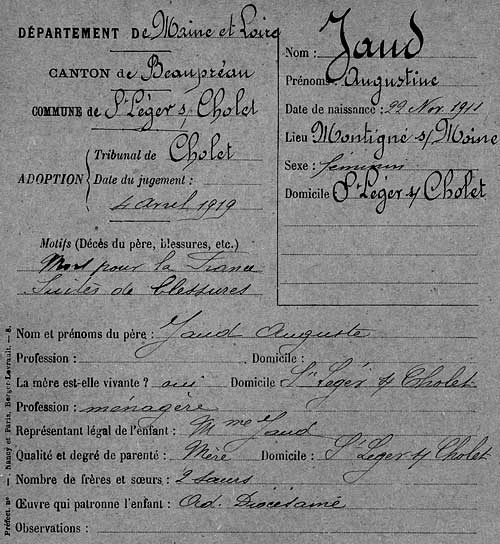 DÉPARTEMENT DE Maine et Loire
CANTON de Beaupréau
COMMUNE de St Léger s/ Cholet
ADOPTION
Tribunal de Cholet
Date du jugement :
4 avril 1919
Motifs (Décès du père, blessures, etc.)
Mort pour la France
Suites de blessures
Nom : Jaud
Prénoms : Augustine
Date de naissance : 22 Nov. 1911
Lieu Montigné s/ Moine
Sexe : féminin
Domicile St Léger s/ Cholet
Nom et prénoms du père : Jaud Auguste
Profession : Domicile :
La mère est-elle vivante ? oui Domicile St Léger s/ Cholet
Profession : ménagère
Représentant légal de l'enfant : Mme Jaud
Qualité et degré de parenté : Mère Domicile : St Léger s/ Cholet
Nombre de frères et sœurs : 2 sœurs
Œuvre qui patronne l'enfant :
Observations :
Préfect. no — Nancy et Paris, Berger-Levrault. — 8.